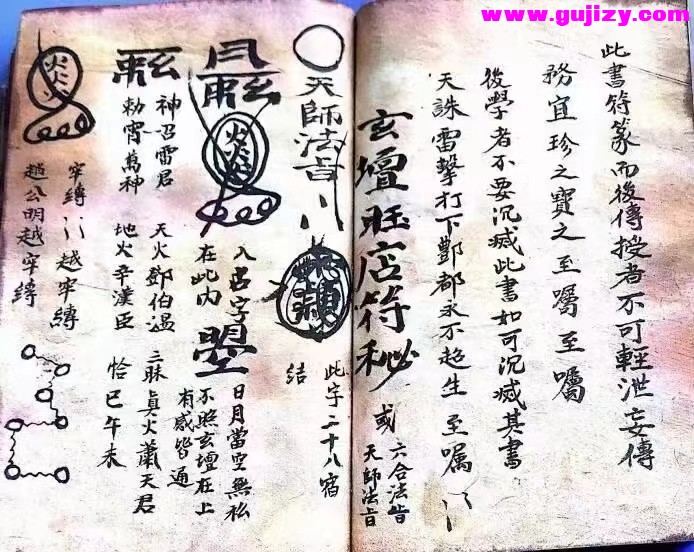 www.gujizy.com
此書符篆而後傳授者不可輕泄妄傳
務宜珍之寶之至囑至囑
後學者不要沉滅此書如可沉滅其書
天誅雷擊打下酆都永不超生至囑
玄壇旺店符秘
或六合法旨
天師法旨
天師法旨
此字二十八宿
結
入名字
在此內
日月當空無私
不照玄壇在上
有感皆通
神召雷君
勅霄萬神
天火鄧伯溫
地火辛漢臣
三昧真火蕭天君
恰巳午未
牢縛越牢縛
趙公明越牢縛
火火火